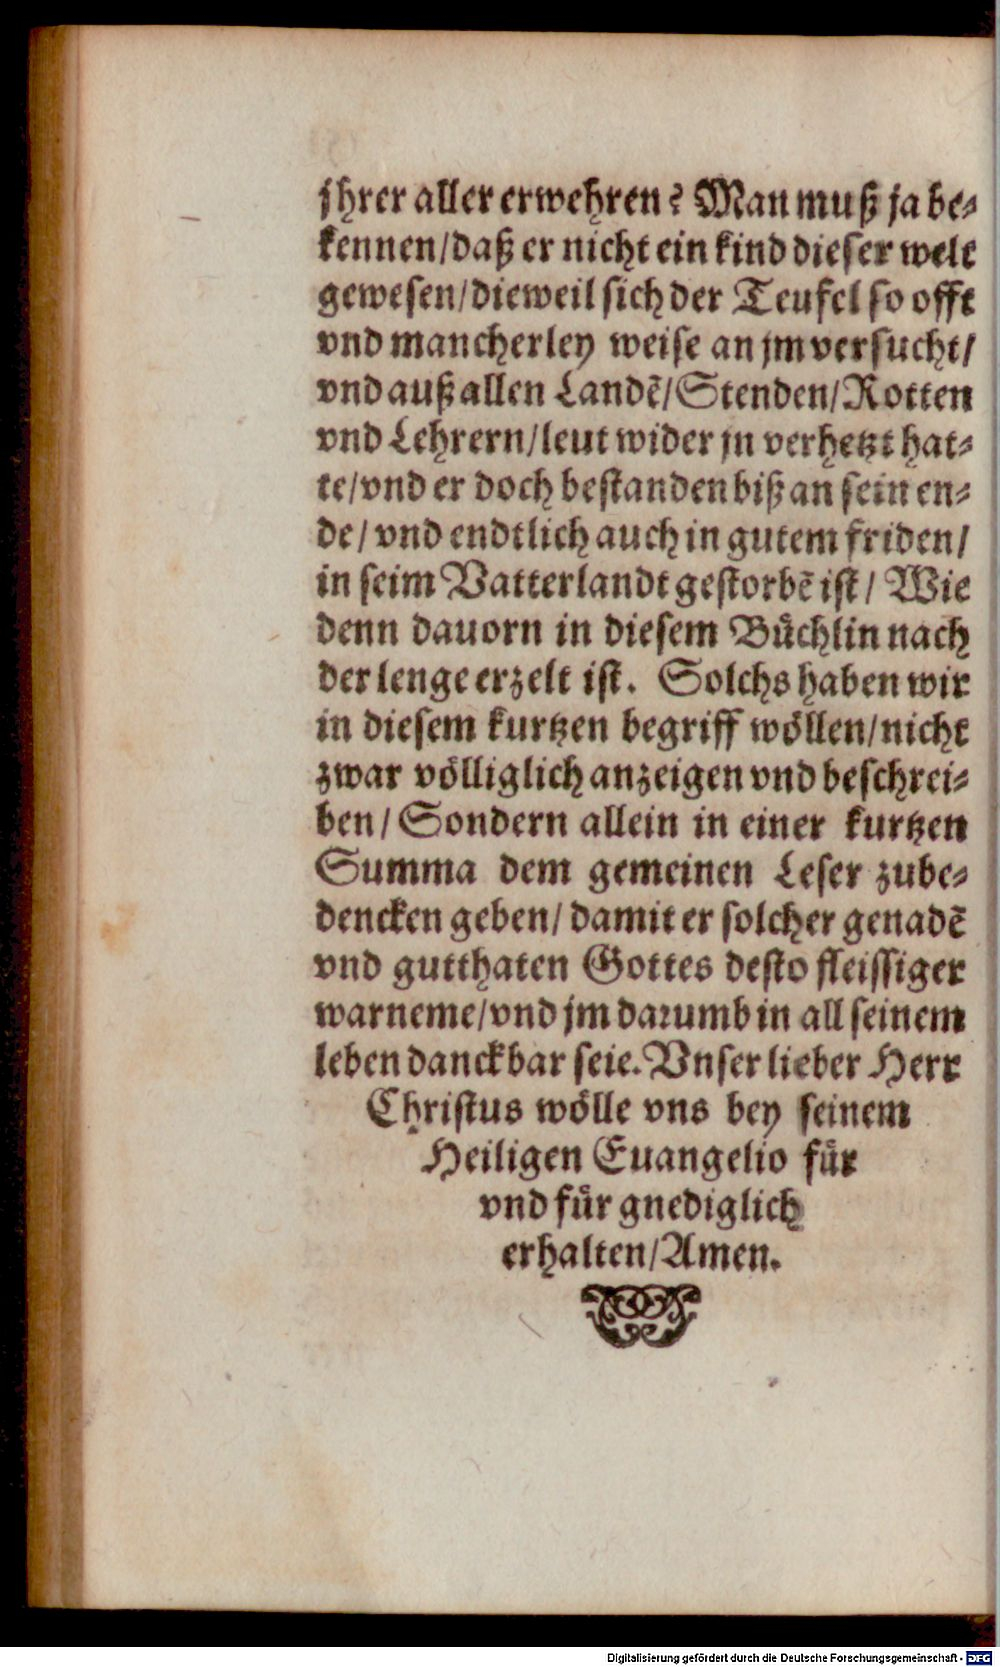 jhrer aller erwehren? Man muß ja be⸗
kennen/daß er nicht ein kind dieser welt
gewesen/dieweil sich der Teufel so offt
vnd mancherley weise an jm versucht/
vnd auß allen Landē/Stenden/Rotten
vnd Lehrern/leut wider jn verhetzt hat⸗
te/vnd er doch bestanden biß an sein en⸗
de/vnd endtlich auch in gutem friden/
in seim Vatterlandt gestorbē ist/ Wie
denn dauorn in diesem Bůchlin nach
der lenge erzelt ist. Solchs haben wir
in diesem kurtzen begriff wöllen/nicht
zwar völliglich anzeigen vnd beschrei⸗
ben/Sondern allein in einer kurtzen
Summa dem gemeinen Leser zube⸗
dencken geben/damit er solcher genadē
vnd gutthaten Gottes desto fleissiger
warneme/vnd jm darumb in all seinem
leben danckbar seie. Vnser lieber Herr
Christus wölle vns bey seinem
Heiligen Euangelio für
vnd für gnediglich
erhalten/Amen.
Digitalisierung gefördert durch die Deutsche Forschungsgemeinschaft - DFG